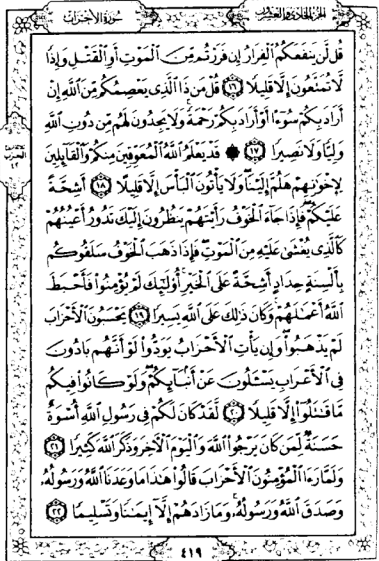 الجزء الحادي والعشرون سورة الأحزاب
قُل لَّن يَنفَعَكُمُ ٱلْفِرَارُ إِن فَرَرْتُم مِّنَ ٱلْمَوْتِ أَوِ ٱلْقَتْلِ وَإِذًا
لَّا تُمَتَّعُونَ إِلَّا قَلِيلًا ١٦ قُلْ مَن ذَا ٱلَّذِى يَعْصِمُكُم مِّنَ ٱللَّهِ إِنْ
أَرَادَ بِكُمْ سُوٓءًا أَوْ أَرَادَ بِكُمْ رَحْمَةً ۚ وَلَا يَجِدُونَ لَهُم مِّن دُونِ ٱللَّهِ
وَلِيًّا وَلَا نَصِيرًا ١٧ ۞ قَدْ يَعْلَمُ ٱللَّهُ ٱلْمُعَوِّقِينَ مِنكُمْ وَٱلْقَآئِلِينَ
لِإِخْوَٰنِهِمْ هَلُمَّ إِلَيْنَا ۖ وَلَا يَأْتُونَ ٱلْبَأْسَ إِلَّا قَلِيلًا ١٨ أَشِحَّةً
عَلَيْكُمْ ۖ فَإِذَا جَآءَ ٱلْخَوْفُ رَأَيْتَهُمْ يَنظُرُونَ إِلَيْكَ تَدُورُ أَعْيُنُهُمْ
كَٱلَّذِى يُغْشَىٰ عَلَيْهِ مِنَ ٱلْمَوْتِ ۖ فَإِذَا ذَهَبَ ٱلْخَوْفُ سَلَقُوكُم
بِأَلْسِنَةٍ حِدَادٍ أَشِحَّةً عَلَى ٱلْخَيْرِ ۚ أُو۟لَٰٓئِكَ لَمْ يُؤْمِنُوا۟ فَأَحْبَطَ
ٱللَّهُ أَعْمَٰلَهُمْ ۚ وَكَانَ ذَٰلِكَ عَلَى ٱللَّهِ يَسِيرًا ١٩ يَحْسَبُونَ ٱلْأَحْزَابَ
لَمْ يَذْهَبُوا۟ ۖ وَإِن يَأْتِ ٱلْأَحْزَابُ يَوَدُّوا۟ لَوْ أَنَّهُم بَادُونَ
فِى ٱلْأَعْرَابِ يَسْـَٔلُونَ عَنْ أَنۢبَآئِكُمْ ۖ وَلَوْ كَانُوا۟ فِيكُم
مَّا قَٰتَلُوٓا۟ إِلَّا قَلِيلًا ٢٠ لَّقَدْ كَانَ لَكُمْ فِى رَسُولِ ٱللَّهِ أُسْوَةٌ
حَسَنَةٌ لِّمَن كَانَ يَرْجُوا۟ ٱللَّهَ وَٱلْيَوْمَ ٱلْءَاخِرَ وَذَكَرَ ٱللَّهَ كَثِيرًا ٢١
وَلَمَّا رَءَا ٱلْمُؤْمِنُونَ ٱلْأَحْزَابَ قَالُوا۟ هَٰذَا مَا وَعَدَنَا ٱللَّهُ وَرَسُولُهُۥ
وَصَدَقَ ٱللَّهُ وَرَسُولُهُۥ ۚ وَمَا زَادَهُمْ إِلَّآ إِيمَٰنًا وَتَسْلِيمًا ٢٢
٤١٩